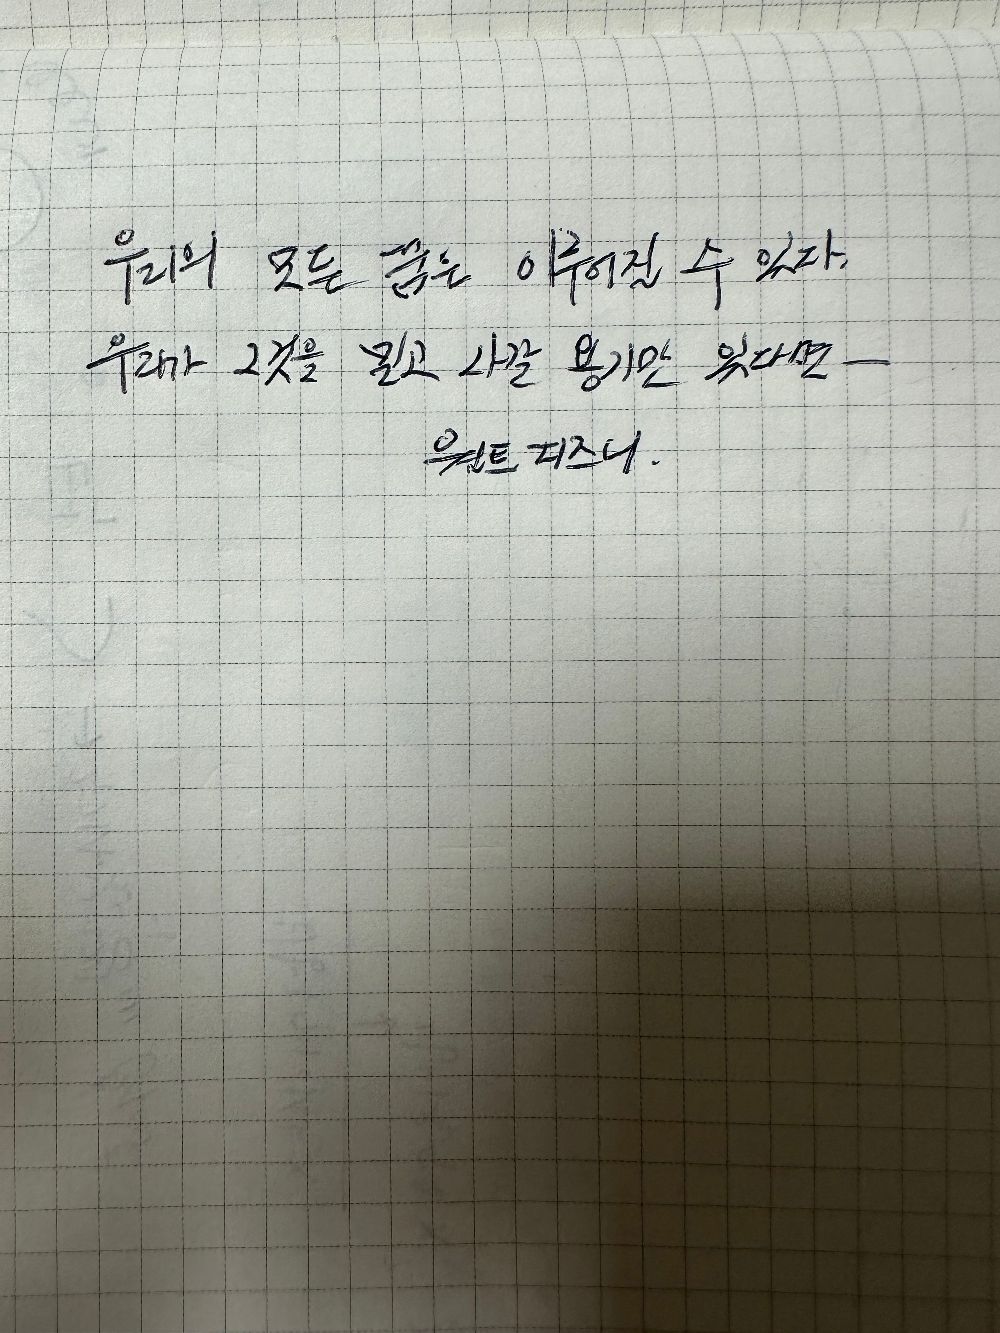 우리의 모든 꿈은 이루어질 수 있다.
우리가 그것을 믿고 나갈 용기만 있다면 —
월트 디즈니.